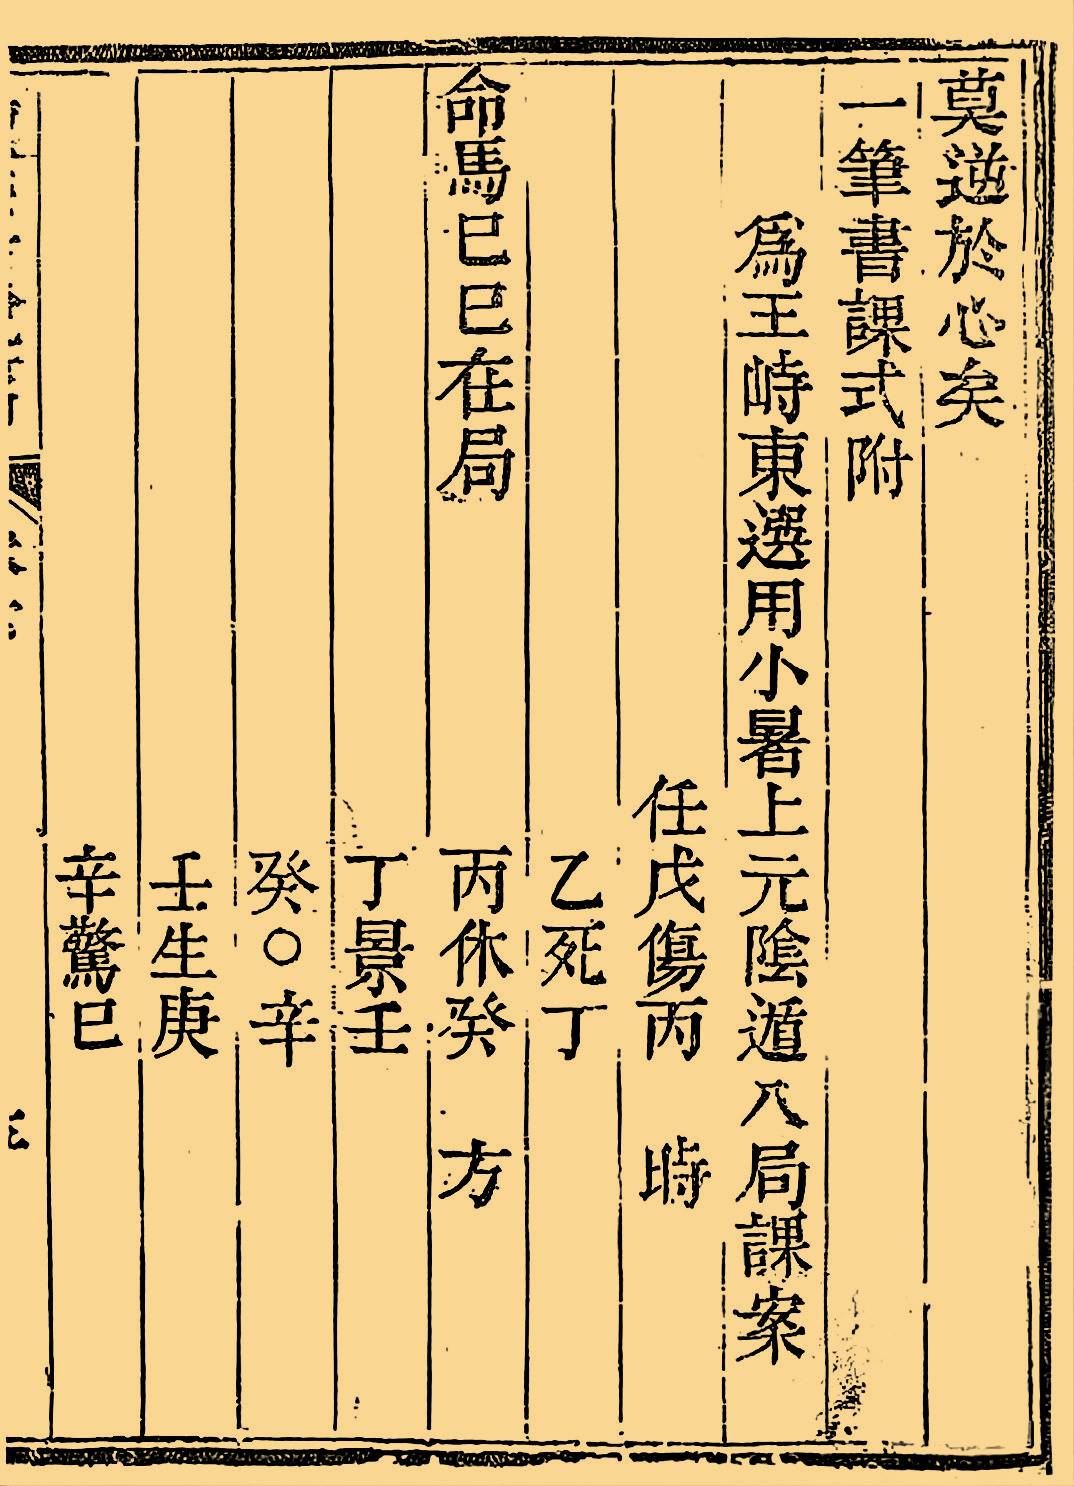 莫逆於心矣
一筆書課式附
為王峙東選用小暑上元陰遁八局課案
任戊傷丙　時
乙死丁
命馬巳巳在局　丙休癸　方
丁景壬
癸○辛
壬生庚
辛驚巳